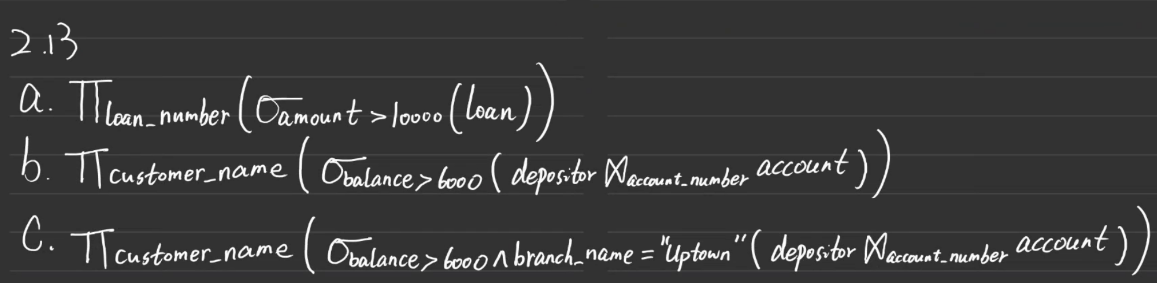 2.13
a. Π loan_number (σ amount > 10000 (loan))
b. Π customer_name (σ balance > 6000 (depositor ⋈ account_number account))
C. Π customer_name (σ balance > 6000 ∧ branch_name = "Uptown" (depositor ⋈ account_number account))